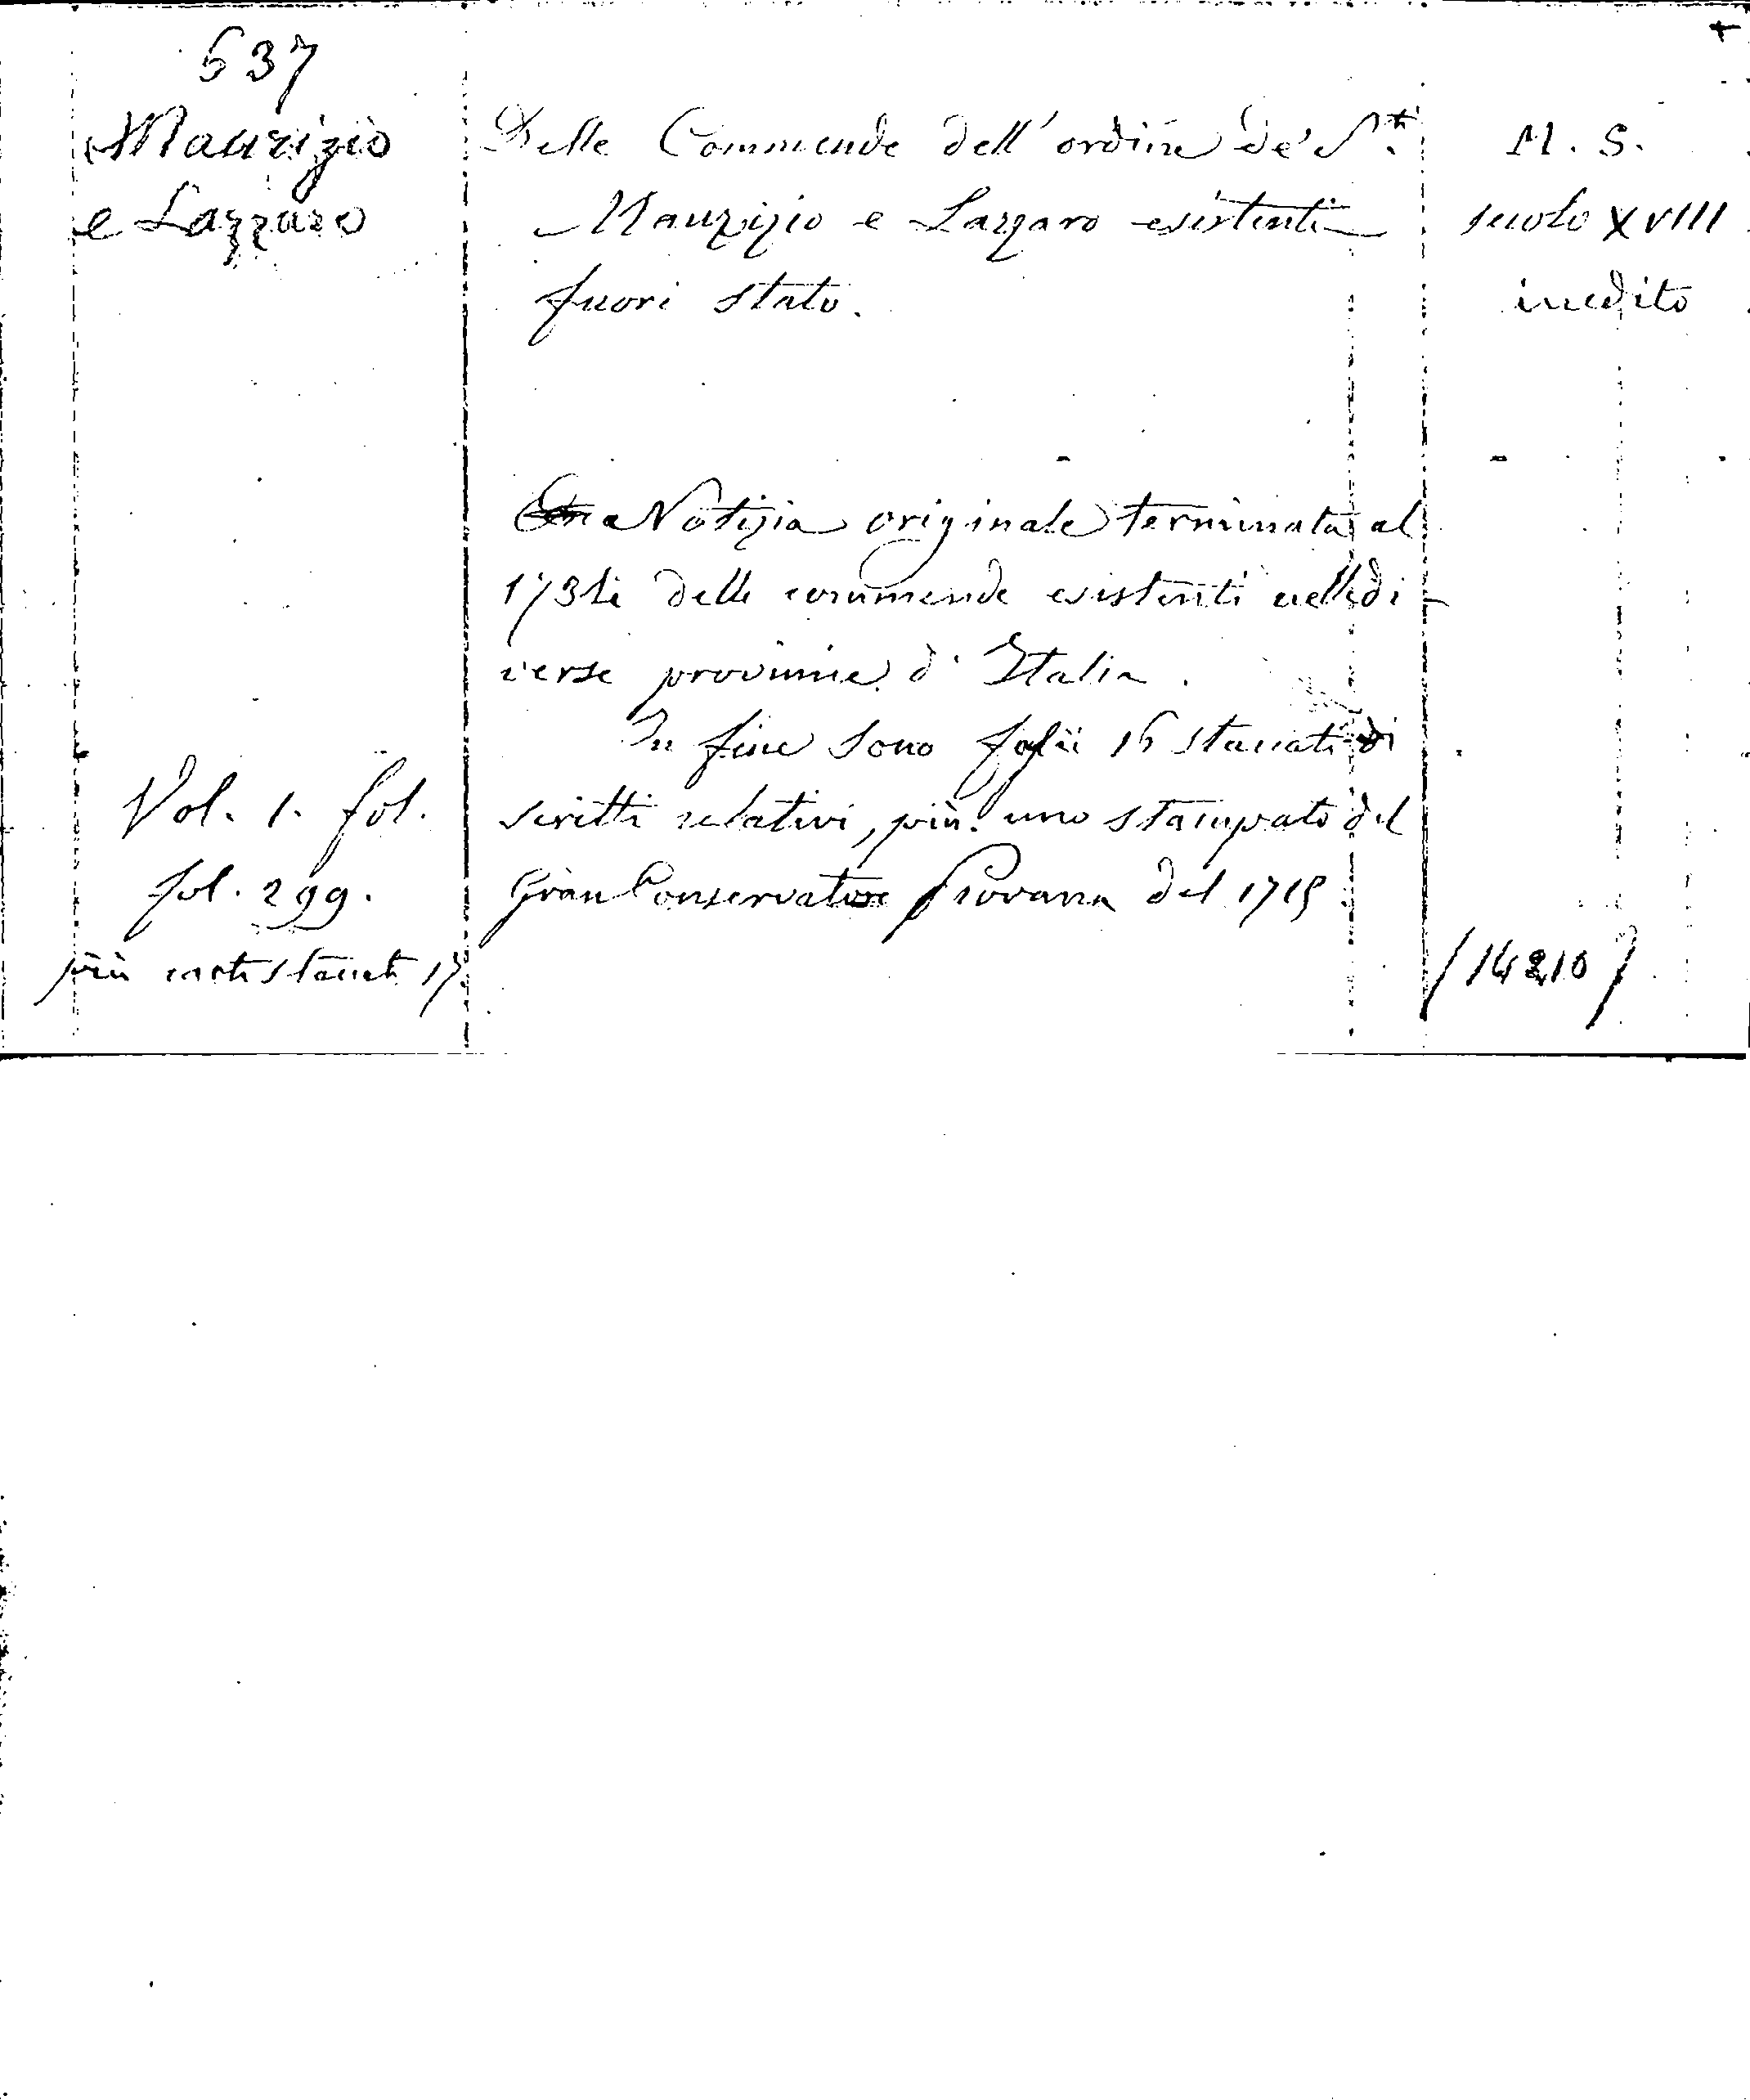 637
Maurizio
e Lazzaro
Delle Commende dell' ordine de' S.ti
Maurizio e Lazzaro esistenti
fuori stato.
M. S.
secolo XVIII
inedito
Notizia originale terminata al
delle commende esistenti nelle di-
verse provincie d' Italia.
In fine sono foglii 16 staccati di
scritti relativi, più uno stampato del
Gran Conservatore Provana del 1715
Vol. 1. fol.
fol. 299.
più carte staccate 17.
(14210)